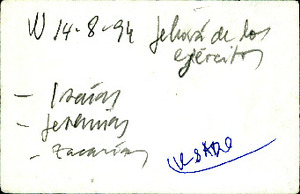 W 14-8-94 Jehová de los
ejércitos
- Isaías
- Jeremías
- Zacarías
USADO